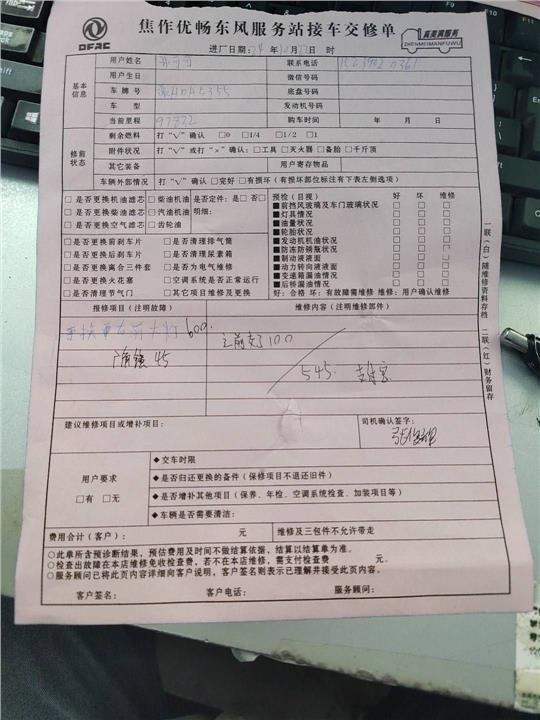 DFAC
焦作优畅东风服务站接车交修单
真美满服务
ZHENMEIMANFUWU
进厂日期: 24 年 月 日 时
基本信息
用户姓名 联系电话
用户生日 微信号码
车牌号 底盘号码
车型 发动机号码
当前里程 97832 购车时间 年 月 日
修前状态
剩余燃料 打“√”确认 □0 □1/4 □1/2 □1
附件状况 打“√”或打“×”确认:□工具 □灭火器 □备胎 □千斤顶
其它装备 用户寄存物品
车辆外部情况 打“√”确认 □完好 □有损坏(有损坏部位标注有下表左侧选项)
□是否更换机油滤芯 □柴油机油 是否定件:是□ 否□
□是否更换柴油滤芯 □汽油机油 明细:
□是否更换空气滤芯 □齿轮油
□是否更换前刹车片 □是否清理排气筒
□是否更换后刹车片 □是否清理尿素箱
□是否更换离合三件套 □是否为电气维修
□是否更换火花塞 □空调系统是否正常运行
□是否清理节气门 □其它项目维修及更换
预检(目视) 好 坏 维修
■前挡风玻璃及车门玻璃状况 □ □ □
■灯具情况 □ □ □
■油量状况 □ □ □
■轮胎状况 □ □ □
■发动机机油情况 □ □ □
■防冻防锈瓶状况 □ □ □
■制动液液面 □ □ □
■动力转向液液面 □ □ □
■变速箱漏油情况 □ □ □
■后桥漏油情况 □ □ □
好:合格 坏:有故障需维修 维修:用户确认维修
报修项目(注明故障) 维修内容(注明维修部件)
600.
45
545. 支付宝
建议维修项目或增补项目:
司机确认签字:
用户要求
□有 □无
◆交车时限
◆是否归还更换的备件(保修项目不退还旧件)
◆是否增补其他项目(保养、年检、空调系统检查、加装项目等)
◆车辆是否需要清洁:
费用合计(客户): 元 维修及三包件不允许带走
○此单所含预诊断结果,预估费用及时间不做结算依据,结算以结算单为准。
○检查出故障在本店维修免收检查费,若不在本店维修,需支付检查费 元。
○服务顾问已将此页内容详细向客户说明,客户签名则表示已理解并接受此页内容。
客户签名: 客户电话: 服务顾问:
一联(白)随维修资料存档 二联(红)财务留存